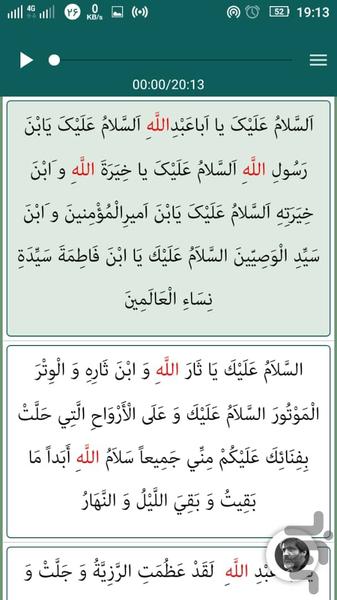 4G ۲۶ 0 KB/s 52 19:13
00:00/20:13
اَلسَّلامُ عَلَیْکَ یا اَباعَبْدِاللَّهِ اَلسَّلامُ عَلَیْکَ یَابْنَ
رَسُولِ اللَّهِ اَلسَّلامُ عَلَیْکَ یا خِیَرَةَ اللَّهِ و َابْنَ
خِیَرَتِهِ اَلسَّلامُ عَلَیْکَ یَابْنَ اَمیرِالْمُؤْمِنینَ و َابْنَ
سَیِّدِ الْوَصِیّینَ السَّلاَمُ عَلَیْكَ یَا ابْنَ فَاطِمَةَ سَیِّدَةِ
نِسَاءِ الْعَالَمِینَ
السَّلاَمُ عَلَیْكَ یَا ثَارَ اللَّهِ وَ ابْنَ ثَارِهِ وَ الْوِتْرَ
الْمَوْتُورَ السَّلاَمُ عَلَیْكَ وَ عَلَى الْأَرْوَاحِ الَّتِي حَلَّتْ
بِفِنَائِكَ عَلَیْكُمْ مِنِّي جَمِیعاً سَلاَمُ اللَّهِ أَبَداً مَا
بَقِیتُ وَ بَقِيَ اللَّیْلُ وَ النَّهَارُ
عَبْدِ اللَّهِ لَقَدْ عَظُمَتِ الرَّزِیَّةُ وَ جَلَّتْ وَ